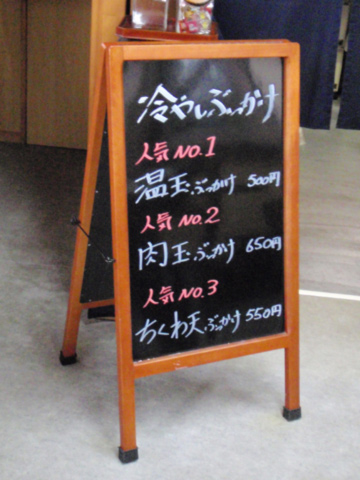 冷やしぶっかけ
人気NO.1
温玉ぶっかけ 500円
人気NO.2
肉玉ぶっかけ 650円
人気NO.3
ちくわ天ぶっかけ 550円